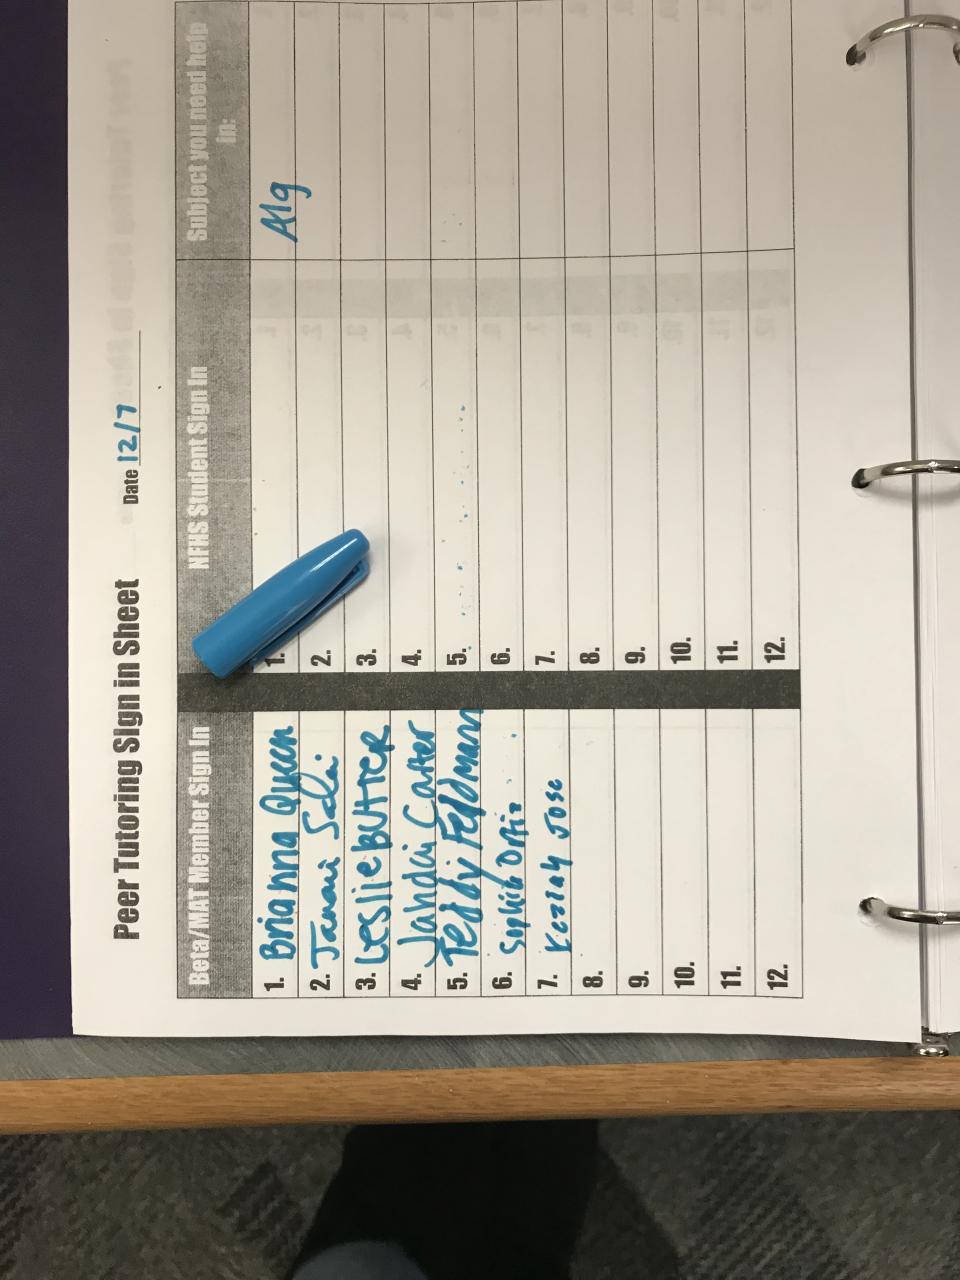 Peer Tutoring Sign in Sheet Date 12/7
Beta/MAT Member Sign In NFHS Student Sign In Subject you need help in:
1. Brianna Queen 1. Alg
2. 2.
3. Leslie Butter 3.
4. Carter 4.
5. Teddy Feldman 5.
6. Sophia Ortiz 6.
7. Keziah Jose 7.
8. 8.
9. 9.
10. 10.
11. 11.
12. 12.